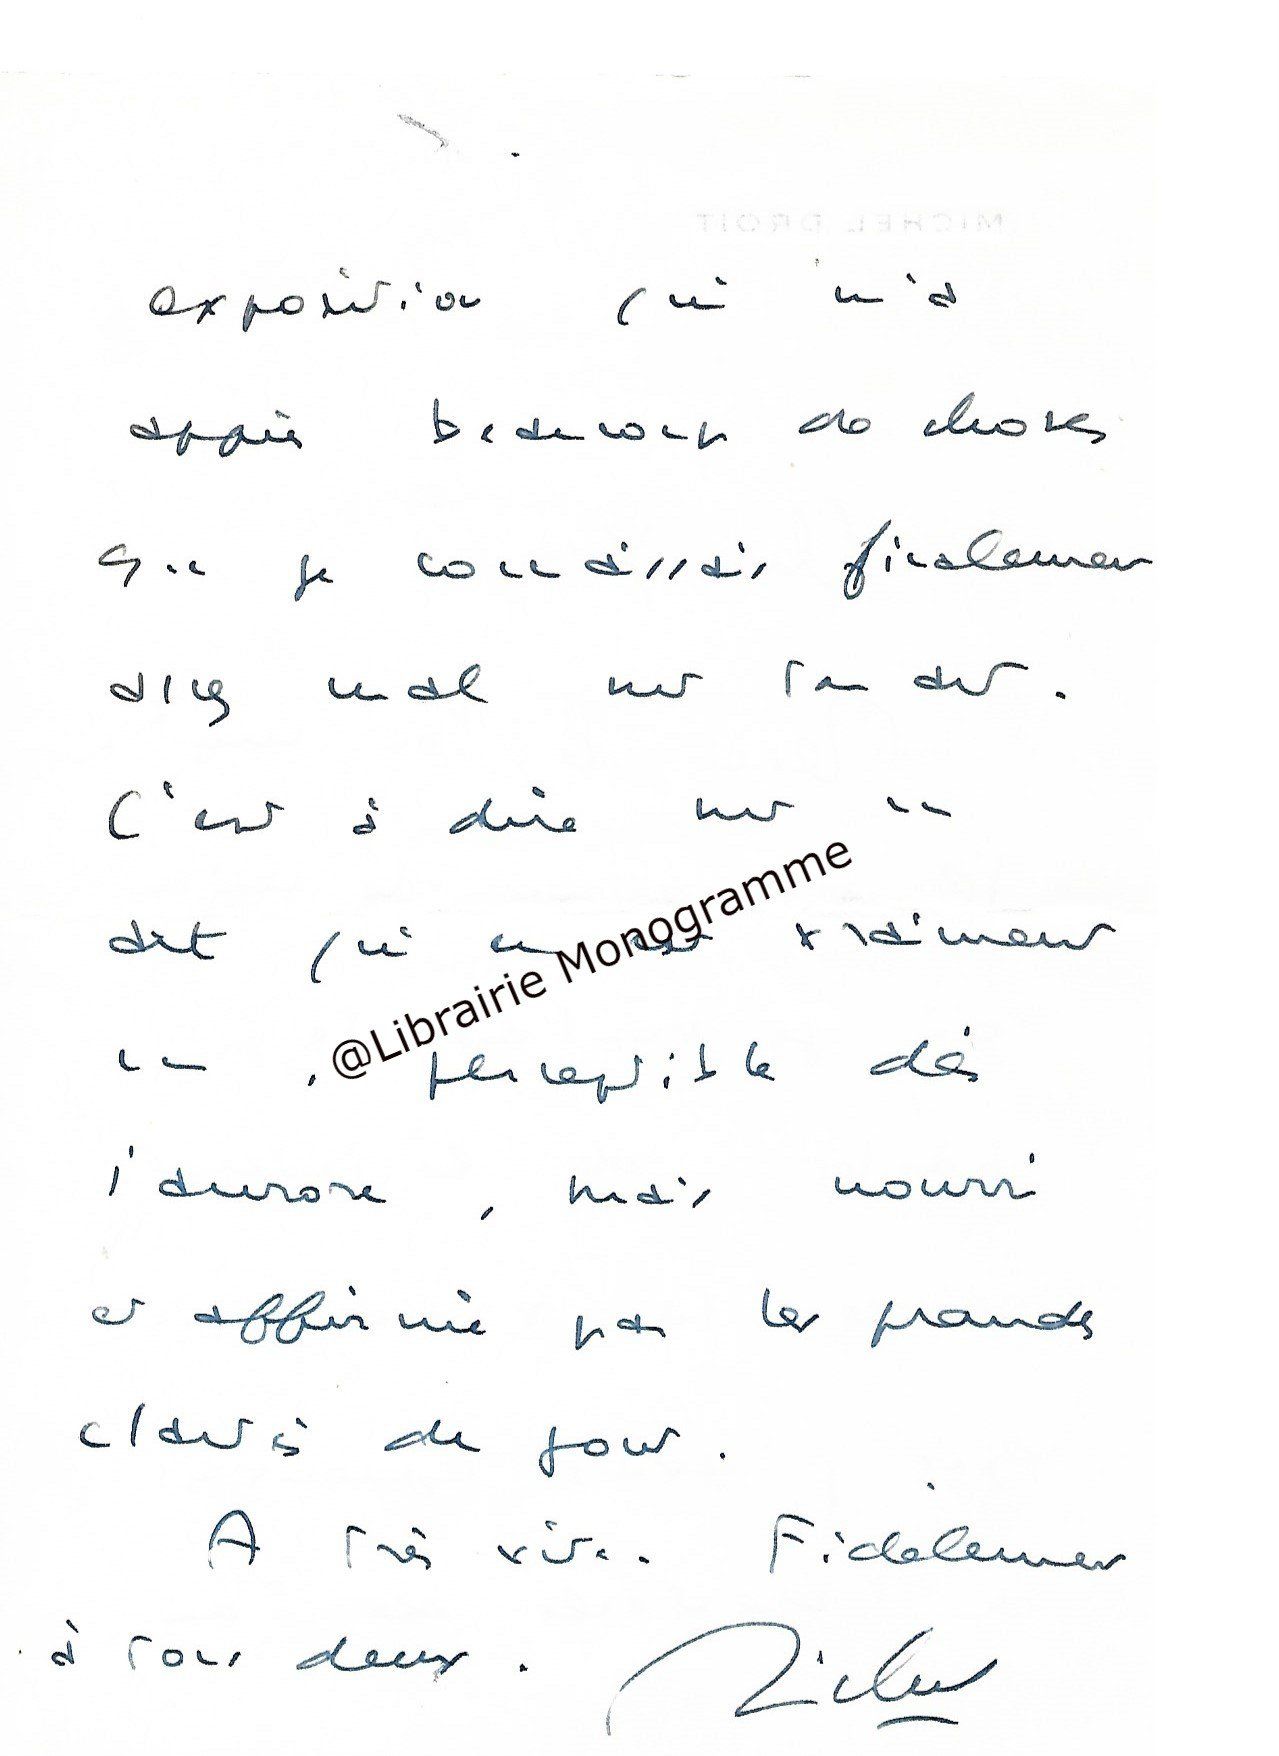 MICHEL DROIT
exposition qui m'a
appris beaucoup de choses
que je connaissais finalement
assez mal sur ton art.
C'est à dire sur un
art qui en est vraiment
un, perceptible dès
l'aurore, mais nourri
et affirmé par les grandes
clartés de jour.
A très vite. Fidèlement
à tous deux. Michel
@Librairie Monogramme